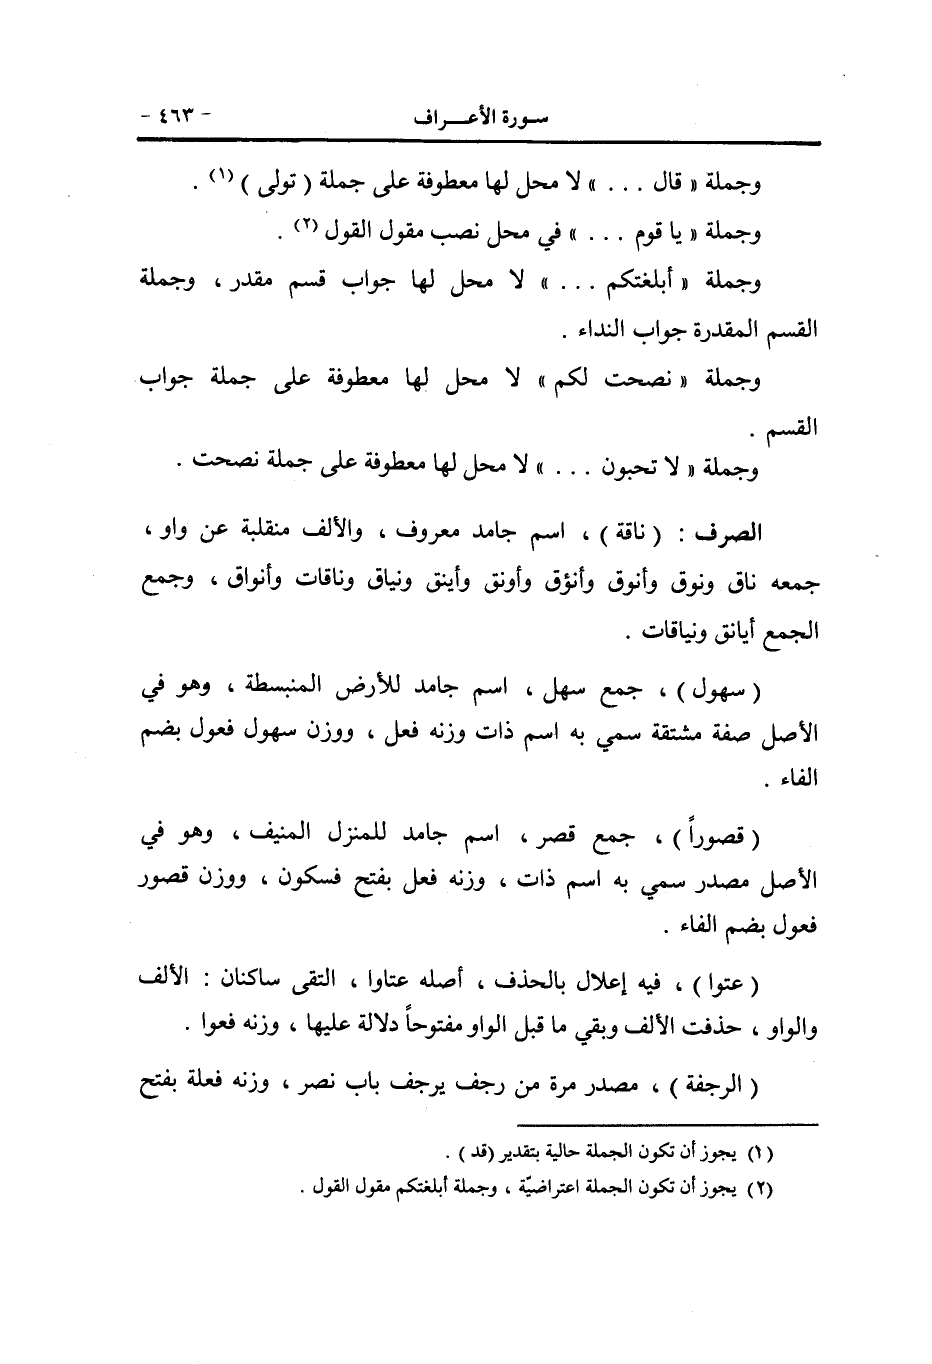 سورة الأعراف - ٤٦٣ -
وجملة « قال . . . » لا محل لها معطوفة على جملة ( تولى ) (١) .
وجملة « يا قوم . . . » في محل نصب مقول القول (٢) .
وجملة « أبلغتكم . . . » لا محل لها جواب قسم مقدر ، وجملة
القسم المقدرة جواب النداء .
وجملة « نصحت لكم » لا محل لها معطوفة على جملة جواب
القسم .
وجملة « لا تحبون . . . » لا محل لها معطوفة على جملة نصحت .
الصرف : ( ناقة ) ، اسم جامد معروف ، والألف منقلبة عن واو ،
جمعه ناق ونوق وأنوق وأنؤق وأونق وأينق ونياق وناقات وأنواق ، وجمع
الجمع أيانق ونياقات .
( سهول ) ، جمع سهل ، اسم جامد للأرض المنبسطة ، وهو في
الأصل صفة مشتقة سمي به اسم ذات وزنه فعل ، ووزن سهول فعول بضم
الفاء .
( قصوراً ) ، جمع قصر ، اسم جامد للمنزل المنيف ، وهو في
الأصل مصدر سمي به اسم ذات ، وزنه فعل بفتح فسكون ، ووزن قصور
فعول بضم الفاء .
( عتوا ) ، فيه إعلال بالحذف ، أصله عتاوا ، التقى ساكنان : الألف
والواو ، حذفت الألف وبقي ما قبل الواو مفتوحاً دلالة عليها ، وزنه فعوا .
( الرجفة ) ، مصدر مرة من رجف يرجف باب نصر ، وزنه فعلة بفتح
(١) يجوز أن تكون الجملة حالية بتقدير (قد ) .
(٢) يجوز أن تكون الجملة اعتراضيّة ، وجملة أبلغتكم مقول القول .